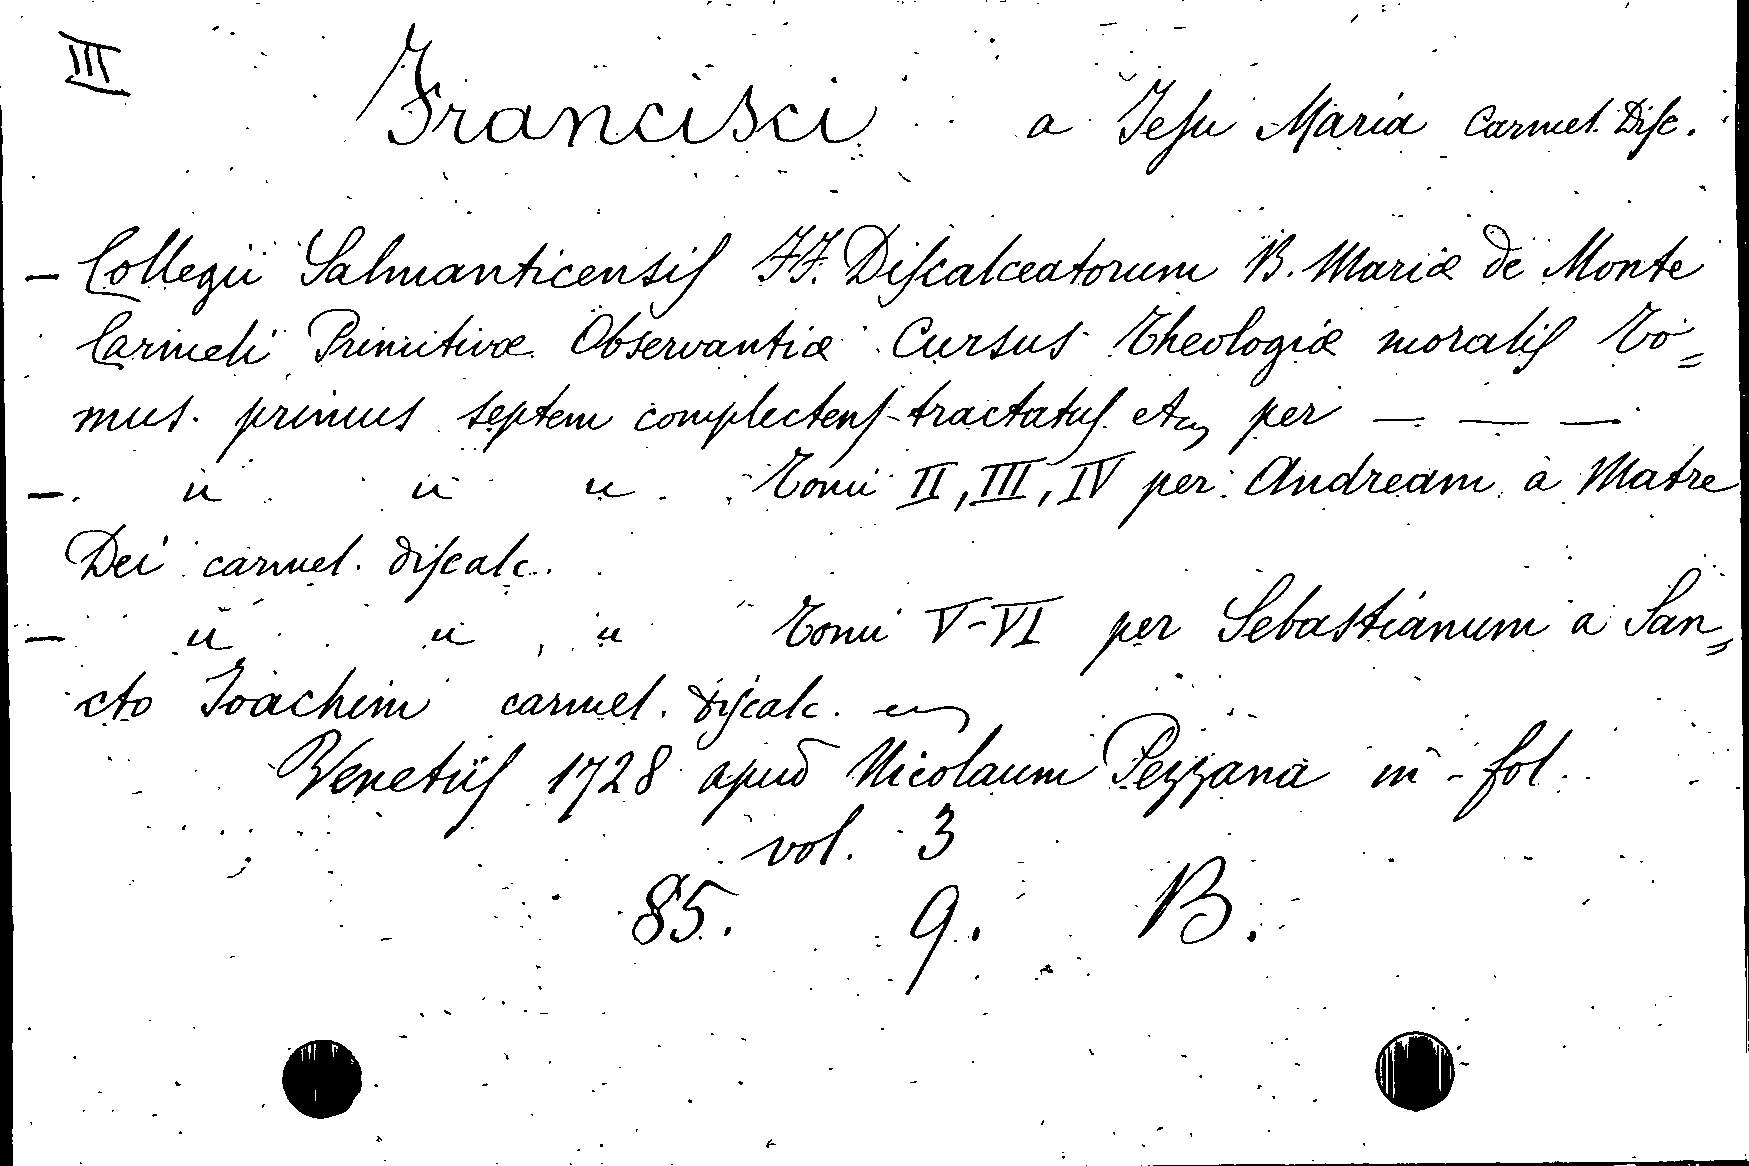 III
Francisci a Jesu Maria Carmel. Disc.
- Collegii Salmanticensis FF. Discalceatorum B. Mariæ de Monte
Carmeli Primitivæ Observantiæ Cursus Theologiæ moralis To=
mus primus septem complectens tractatus etc per — — —
- " " " Tomi II, III, IV per Andream à Matre
Dei carmel. discalc.
- " " " Tomi V-VI per Sebastianum a San=
cto Joachim carmel. discalc.
Venetiis 1728 apud Nicolaum Pezzana in-fol.
vol. 3
85. 9. B.